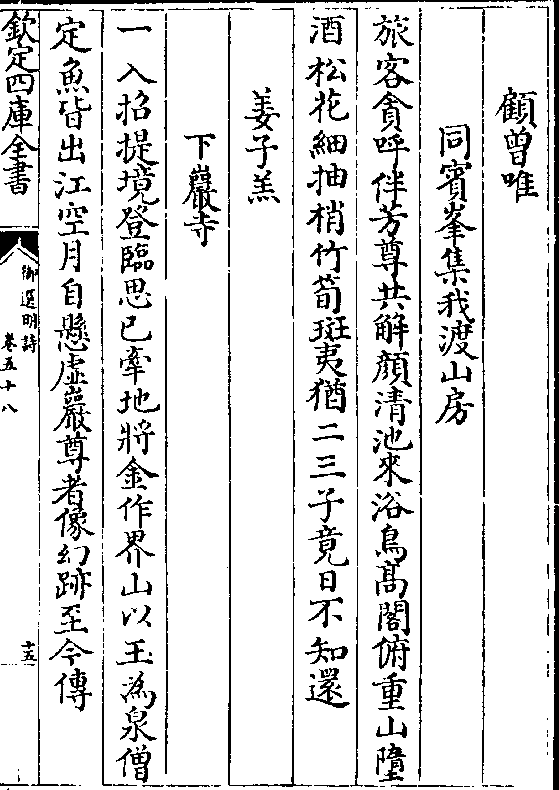 顧曾唯
同賓峯集我渡山房
旅客貪呼伴芳尊共解顔清池來浴鳥髙閣俯重山墮
酒松花細抽梢竹筍斑夷猶二三子竟日不知還
姜子羔
下巖寺
一入招提境登臨思已牽地將金作界山以玉為泉僧
定魚皆出江空月自懸虛巖尊者像幻跡至今傳
欽定四庫全書
御選明詩
卷五十八
十五